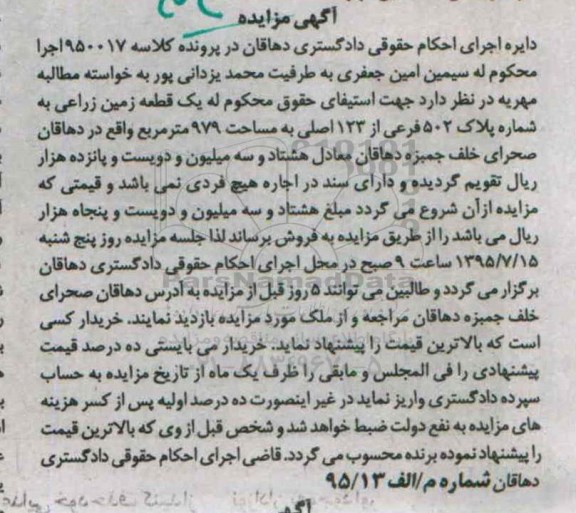 آگهی مزایده
دایره اجرای احکام حقوقی دادگستری دهاقان در پرونده کلاسه ۹۵۰۰۱۷اجرا
محکوم له سیمین امین جعفری به طرفیت محمد یزدانی پور به خواسته مطالبه
مهریه در نظر دارد جهت استیفای حقوق محکوم له یک قطعه زمین زراعی به
شماره پلاک ۵۰۲ فرعی از ۱۲۳ اصلی به مساحت ۹۷۹ مترمربع واقع در دهاقان
صحرای خلف جمبزه دهاقان معادل هشتاد و سه میلیون و دویست و پانزده هزار
ریال تقویم گردیده و دارای سند در اجاره هیچ فردی نمی باشد و قیمتی که
مزایده ازآن شروع می گردد مبلغ هشتاد و سه میلیون و دویست و پنجاه هزار
ریال می باشد را از طریق مزایده به فروش برساند لذا جلسه مزایده روز پنج شنبه
۱۳۹۵/۷/۱۵ ساعت ۹ صبح در محل اجرای احکام حقوقی دادگستری دهاقان
برگزار می گردد و طالبین می توانند ۵ روز قبل از مزایده به آدرس دهاقان صحرای
خلف جمبزه دهاقان مراجعه و از ملک مورد مزایده بازدید نمایند. خریدار کسی
است که بالاترین قیمت را پیشنهاد نماید. خریدار می بایستی ده درصد قیمت
پیشنهادی را فی المجلس و مابقی را ظرف یک ماه از تاریخ مزایده به حساب
سپرده دادگستری واریز نماید در غیر اینصورت ده درصد اولیه پس از کسر هزینه
های مزایده به نفع دولت ضبط خواهد شد و شخص قبل از وی که بالاترین قیمت
را پیشنهاد نموده برنده محسوب می گردد. قاضی اجرای احکام حقوقی دادگستری
دهاقان شماره م/الف ۹۵/۱۳
ParsNamadData